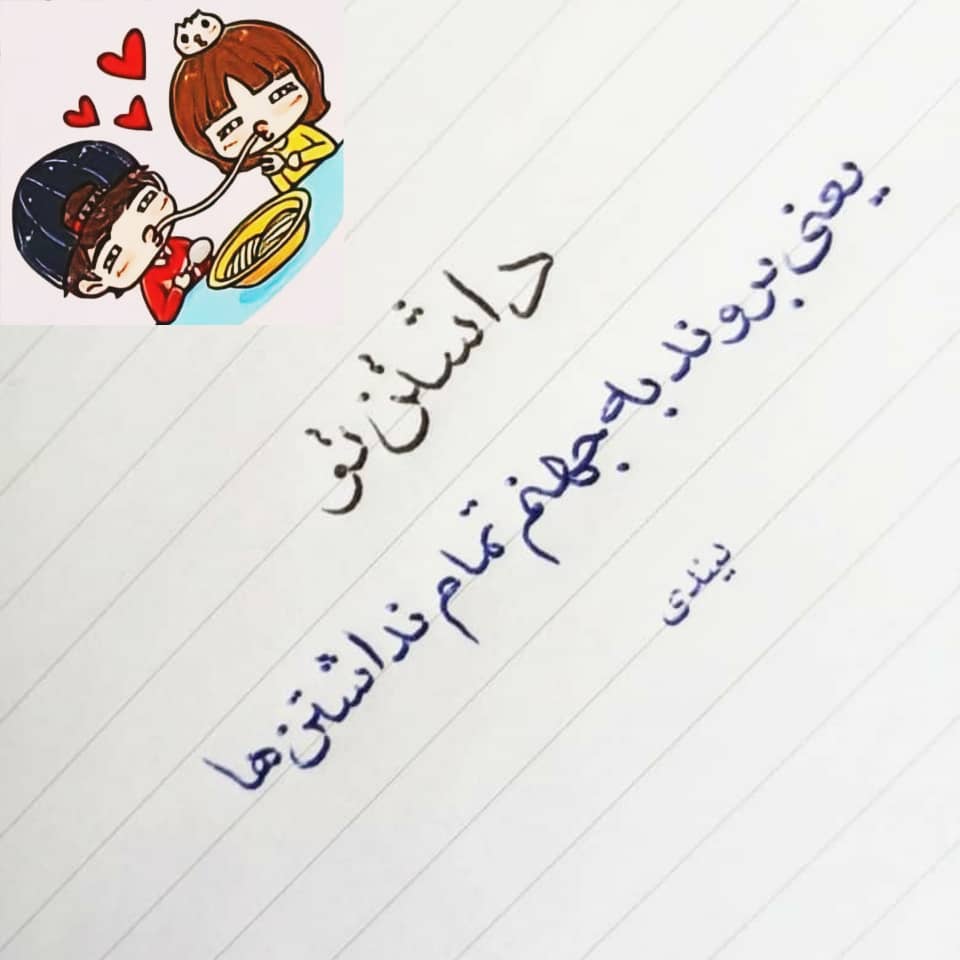 داشتن تو
یعنی بروند به جهنم تمام نداشتن‌ها